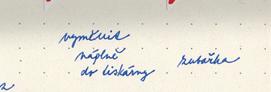 vyměnit
náplně
do tiskárny
zubařka